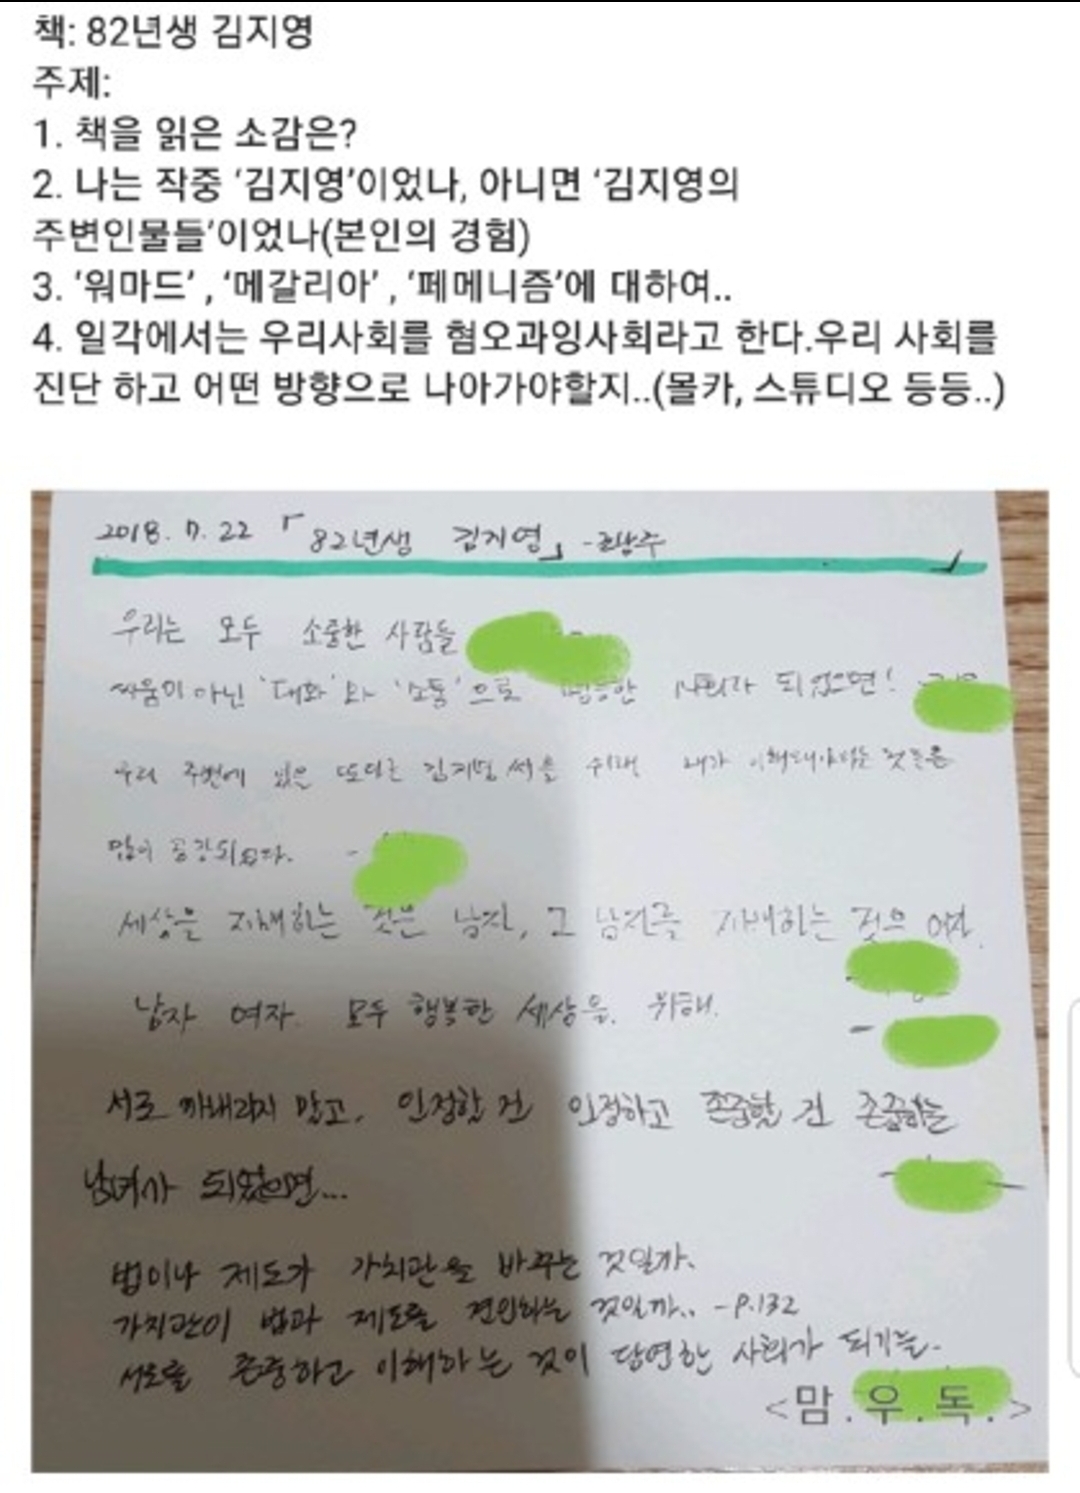 책: 82년생 김지영
주제:
1. 책을 읽은 소감은?
2. 나는 작중 ‘김지영’이었나, 아니면 ‘김지영의
주변인물들’이었나(본인의 경험)
3. ‘워마드’ , ‘메갈리아’ , ‘페메니즘’에 대하여..
4. 일각에서는 우리사회를 혐오과잉사회라고 한다.우리 사회를
진단 하고 어떤 방향으로 나아가야할지..(몰카, 스튜디오 등등..)
2018. 7. 22 「82년생 김지영」
우리는 모두 소중한 사람들
싸움이 아닌 '대화'와 '소통'으로 평등한 사회가 되었으면!
우리 주변에 있은 또다른 김지영씨를 위해 내가 것들은
많이 공감되었다. -
세상을 지배하는 것은 남자, 그 남자를 지배하는 것은 여자.
남자 여자. 모두 행복한 세상을. 위해.
서로 깎아내리지 말고, 인정할 건 인정하고 존중할 건 존중하는
남녀가 되었으면...
법이나 제도가 가치관을 바꾸는 것일까.
가치관이 법과 제도를 견인하는 것일까.. -P.132
서로를 존중하고 이해하는 것이 당연한 사회가 되기를.
<맘.우.독.>